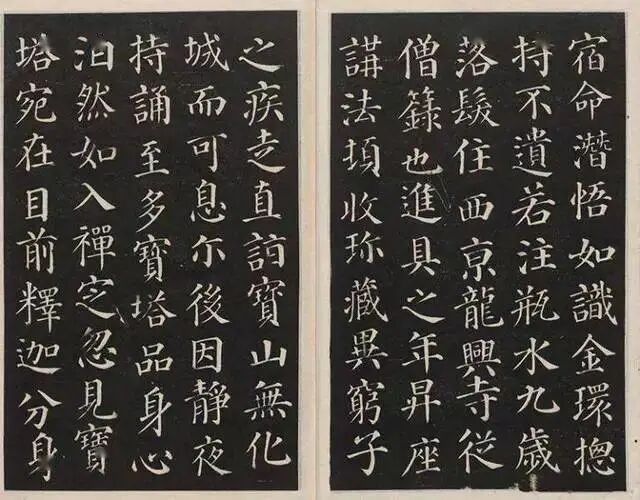 宿命潛悟如識金環揔
持不遺若注瓶水九歲
落髮住西京龍興寺從
僧籙也進具之年昇座
講法頓收珎藏異窮子
之疾走直詣寶山無化
城而可息尒後因靜夜
持誦至多寶塔品身心
泊然如入禪定忽見寶
塔宛在目前釋迦分身